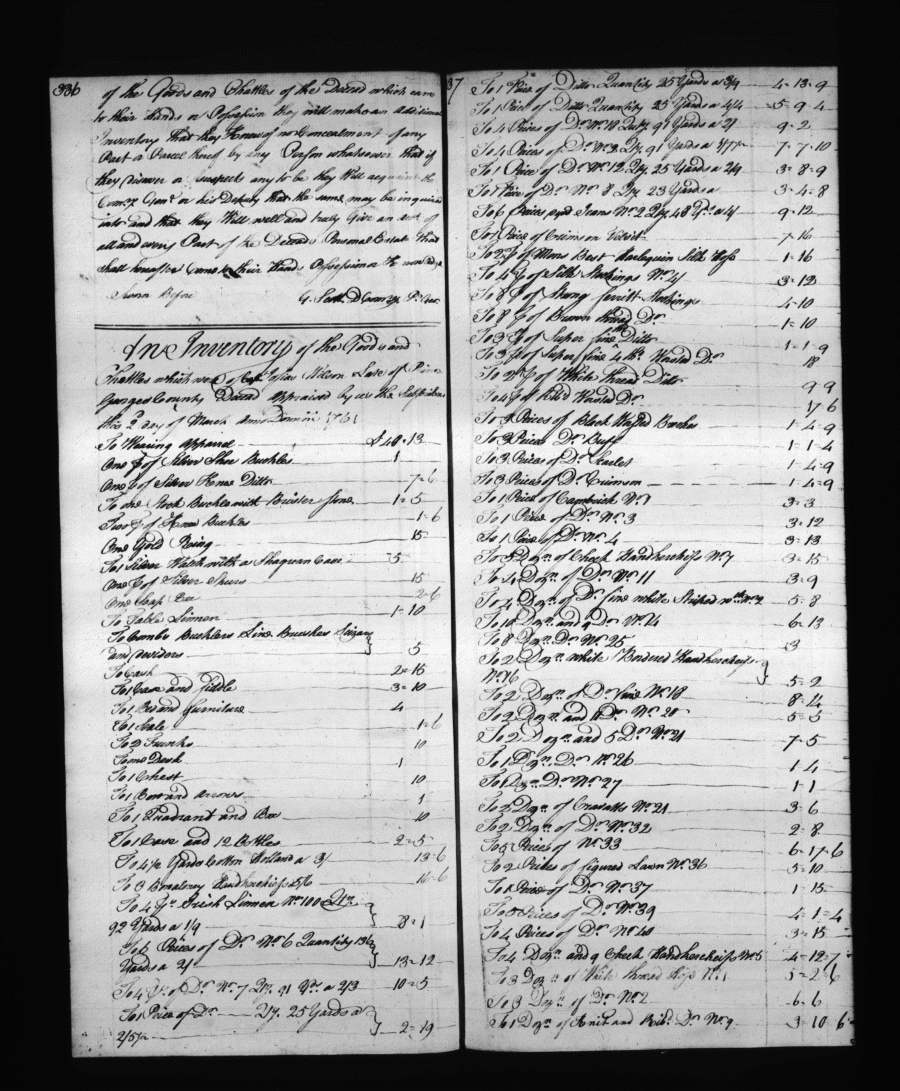 336
of the Goods and Chattles of the Deced which came
to their Hands or Possession they will make an additional
Inventory That they Know of no Concealment of any
Part or Parcel thereof by any Person whatsoever that if
they discover or suspects any to be they Will acquaint the
Comry Genl or his Deputy that the same may be inquired
into and that they Will well and truly Give an acct of
all and every Part of the Deceds Personal Estate that
shall hereafter Come to their Hands Possession &
Sworn Before G. Scott D Comry Pr. Geo:
An Inventory of the Goods and
Chattles which were of Capt Josias Wilson Late of Prince
Georges County Deced Appraised by us the Subscribers
this 2d day of March Anno Domini 1761
To Wearing Apparel £40-13
One pr of Silver Shoe Buckles 1
One pr of Silver Knee Ditto 7-6
To one Stock Buckle with Brister Stone 1-5
Two pr of Knee Buckles 1-6
One Gold Ring 15
To 1 Silver Watch with a Shagrean Case 5
One pr of Silver Spurs 15
One Soap Box 2-6
To Table Linnen 1-10
To Combs Buckles Line Brushes Scizars
and deviders 5
To Cash 2-15
To 1 Case and fiddle 3-10
To 1 Bed and furniture 4
To 1 Scale 1-6
To 2 Trunks 10
To one Desk 1
To 1 Chest 10
To 1 Bow and arrows 1
To 1 Quadrant and Box 10
To 1 Case and 12 Bottles 2-5
To 4½ Yards Cotton Holland a 3/ 13-6
To 3 Handkercheifs 5/6 16-6
To 4 Ps Irish Linnen No 100 Qty
92 Yards a 1/9 8-1
To 6 Peices of Do No 6 Quantity 136
Yards a 2/ 13-12
To 4 Ps of Do No 7 Qty 91 Yds a 2/3 10-5
To 1 Peice of Do Qy. 25 Yards a
2/5 2-19
37
To 1 Peice of Ditto Quantity 25 Yards a 3/9 4-13-9
To 1 Peice of Ditto Quantity 25 Yards a 4/4 5-9-4
To 4 Peices of Do No 10 Qty 91 Yards a 2/ 9-2
To 4 Peices of Do No 3 Qy 91 Yards a 7-7-10
To 1 Peice of Do No 12 Qy 25 Yards a 2/9 3-8-9
To 1 Peice of Do No 8 Qy 23 Yards a 3-4-8
To 6 Peices Jeans No 2 Qy 48 Yds a 4/ 9-12
To 1 Peice of Crimson Velvit 7-16
To 2 pr of Mens Best Harlequin Silk Hose 1-16
To 4 pr of Silk Stockings No 4 3-12
To 8 pr of Strong ferritt Stockings 4-10
To 8 pr of Brown thread Do 1-10
To 3 pr of Super fine Ditto 1-1-9
To 3 pr of Super fine 4 th Wosted Do 18
To 2 pr of White Thread Ditto 9 9
To 4 pr of Wosted Do 17 6
To 3 Peices of Black Wosted Breches 1-4-9
To 3 Peices Do Buff 1-1-4
To 3 Peices of Do Scarlet 1-4-9
To 3 Peices of Do Crimson 1-4-9
To 1 Peice of Cambrick No 1 3-3
To 1 Peice of Do No 3 3-12
To 1 Peice of Do No 4 3-13
To 5 Dozn of Check Handkercheifs No 7 3-15
To 4 Dozn of Do No 11 3-9
To 4 Dozn of Do fine white Striped 5-8
To 10 Dozn and 9 Do No 14 6-13
To 8 Dozn Do No 25 3
To 2 Dozn white Bordered Handkercheifs
No 16 5-2
To 2 Dozn of Do fine No 18 8-4
To 2 Dozn and Do No 20 5-5
To 2 Dozn and 5 Do No 21 7-5
To 1 Dozn Do No 26 1-4
To 1 Dozn Do No 27 1-1
To 2 Dozn of Cravatts No 21 3-6
To 2 Dozn of Do No 32 2-8
To 5 Peices of No 33 6-17-6
To 2 Peices of figured Lawn No 36 5-10
To 1 Peice of Do No 37 1-15
To 3 Peices of Do No 39 4-1-4
To 4 Peices of Do No 40 3-15
To 4 Dozn and 9 Check Handkercheifs No 5 4-12-7
To 3 Dozn of White thread No 1 5-2-6
To 3 Dozn of Do No 2 6-6
To 1 Dozn of Knit and Rib'd Do No 9 3-10-6